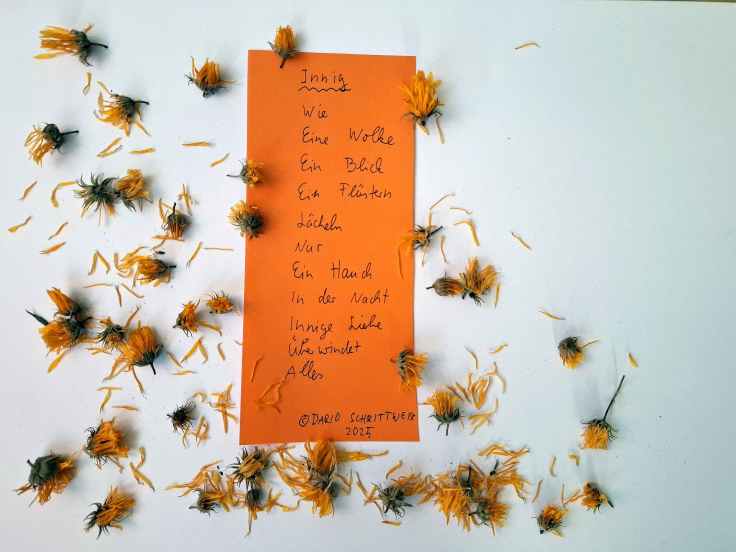 Innig
Wie
Eine Wolke
Ein Blick
Ein Flüstern
Lächeln
Nur
Ein Hauch
In der Nacht
Innige Liebe
Überwindet
Alles
© DARIO SCHRITTWEISE
2025